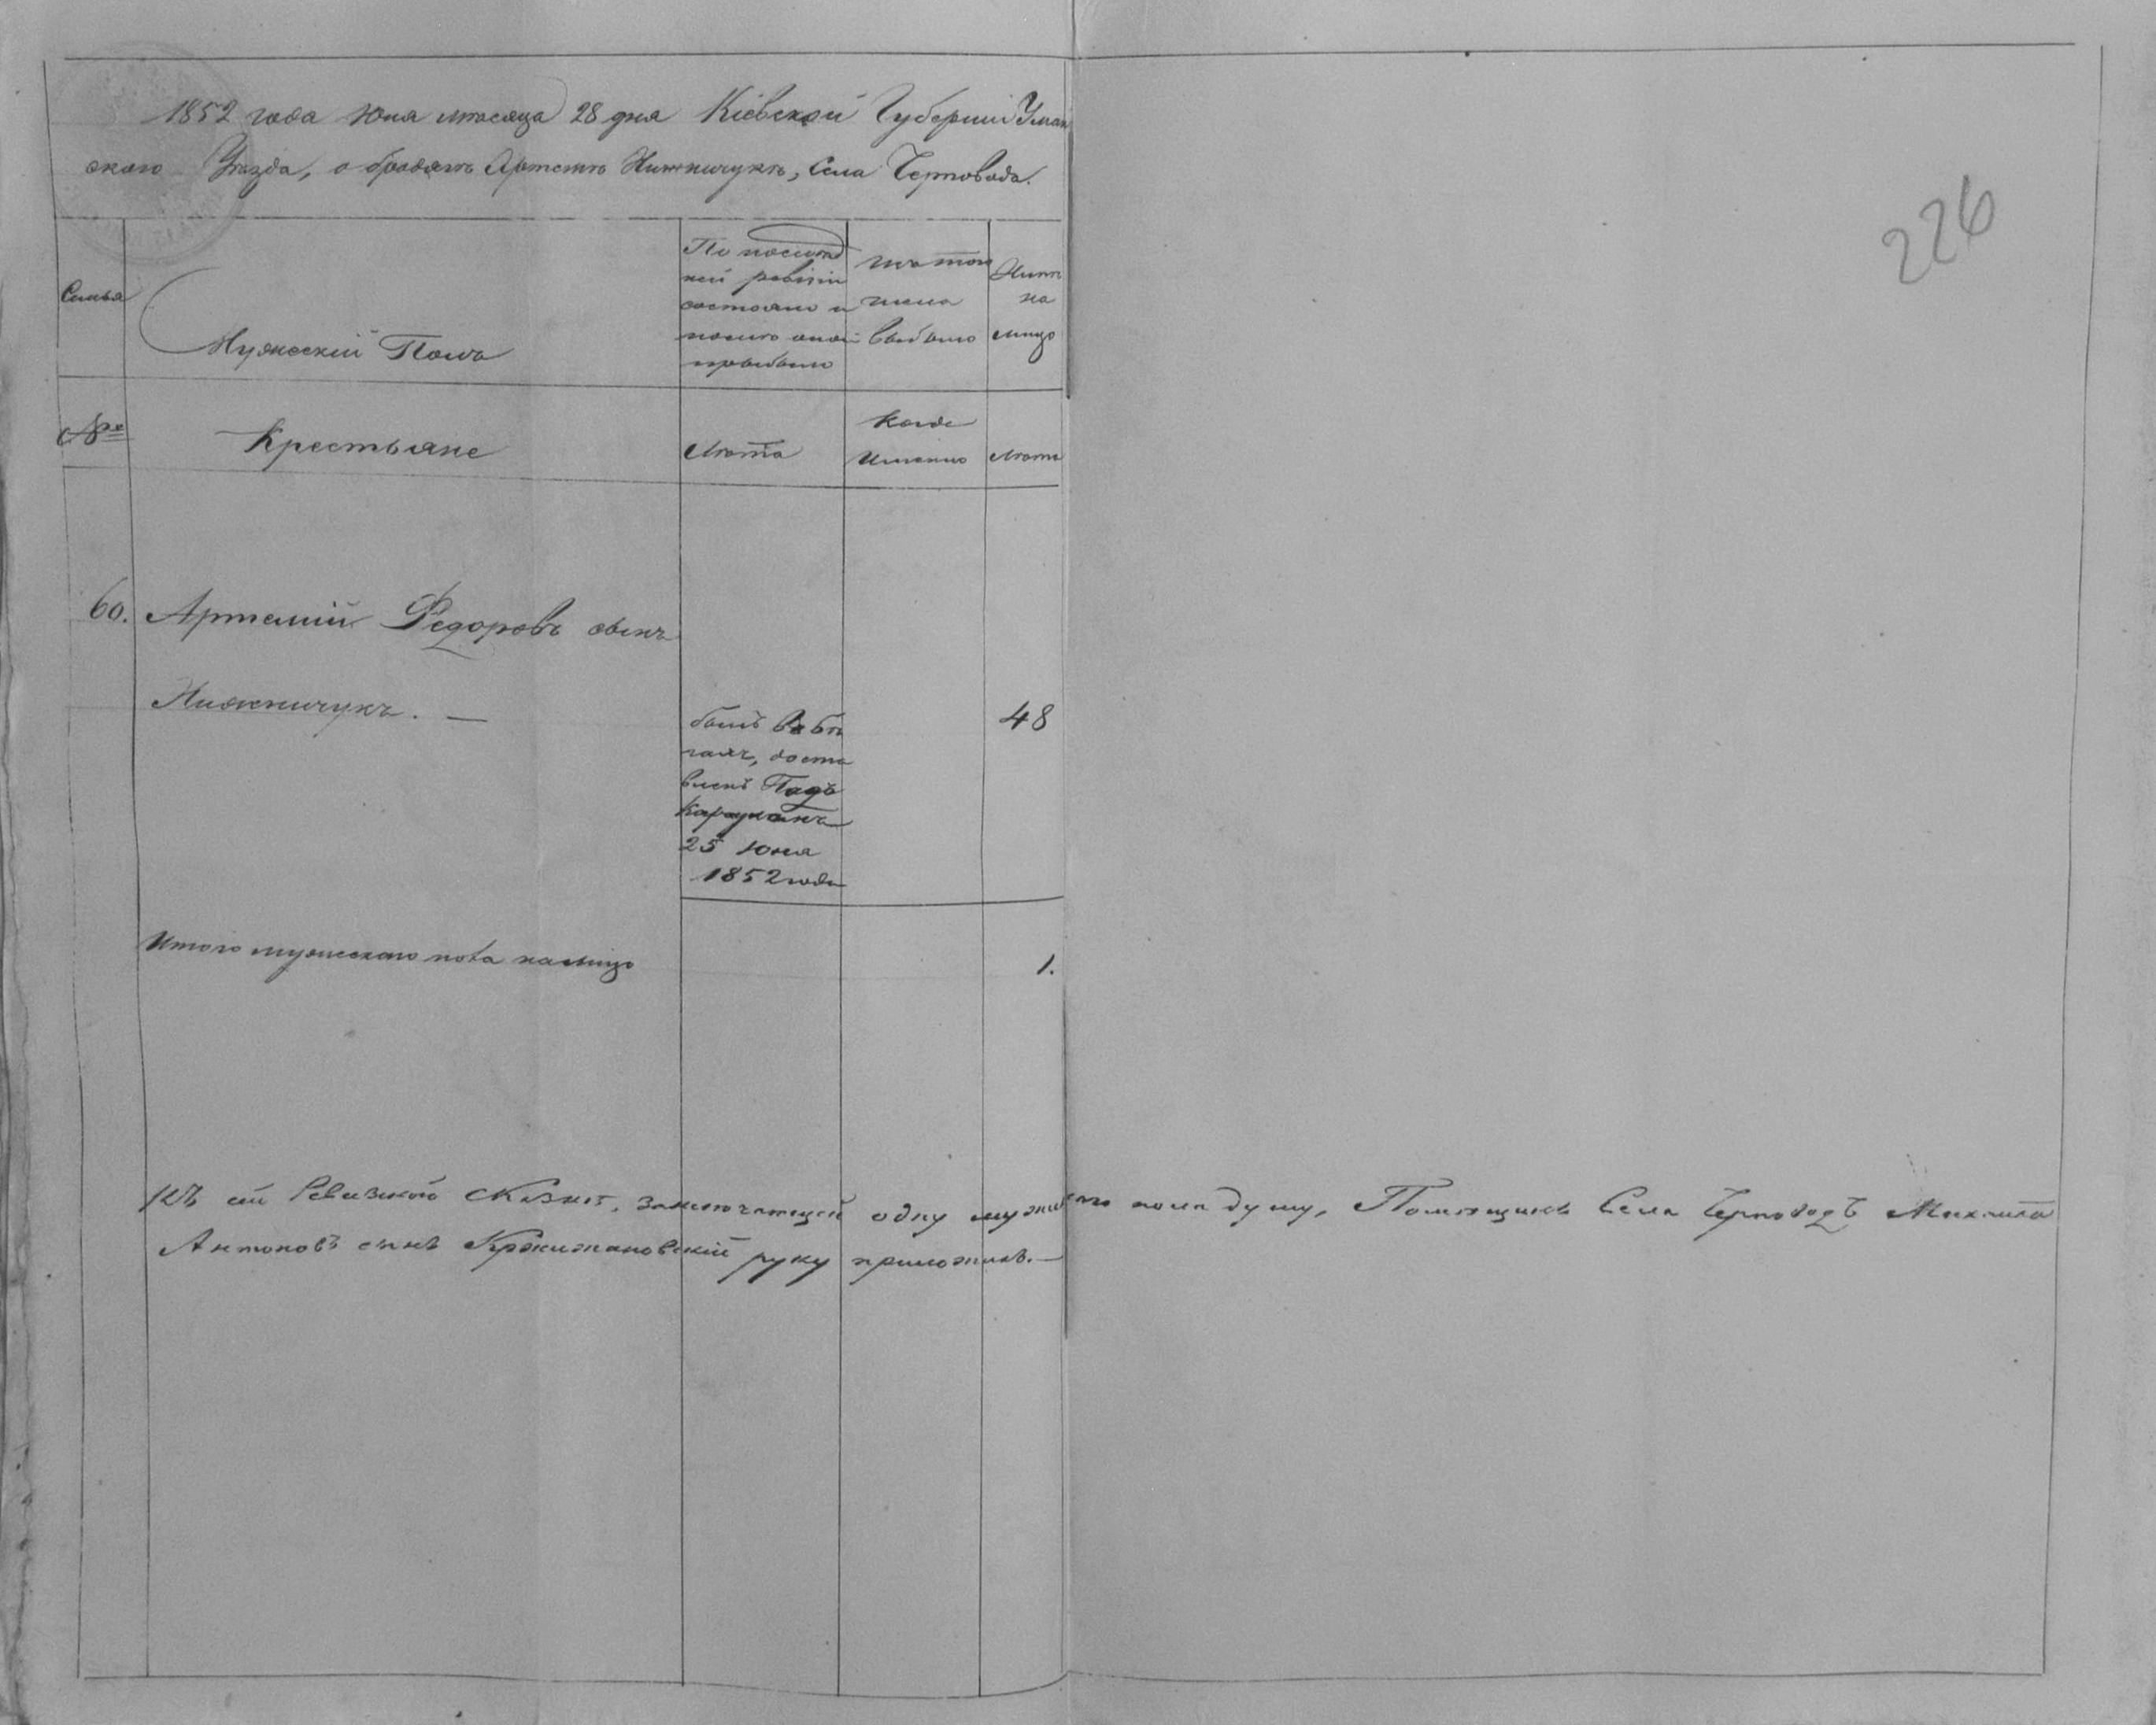 1852 года Юня мѣсяца 28 дня Кіевской Губерніи Уман
скаго Уѣзда, о бродягѣ Артемѣ Нижничукѣ, Села Черповода.
226
Семья
Мужескій Полъ
По послѣд
ней ревізіи
состояло и
послѣ оной
прибыло
изъ того
числа
выбыло
Нынѣ
на
лицо
№
Крестьяне
Лѣта
Когда
Именно
Лѣта
60. Артемій Федоровъ сынъ
Нижничукъ. —
былъ въ бѣ
гахъ, доста
вленъ Подъ
Карауломъ
25 Юня
1852 года
48
Итого мужескаго пола налицо
1.
Къ сей Ревизской Сказкѣ, заключающей одну мужескаго пола душу, Помѣщикъ Села Черповодъ Михаилъ
Антоновъ сынъ Кржижановскій руку приложилъ. —